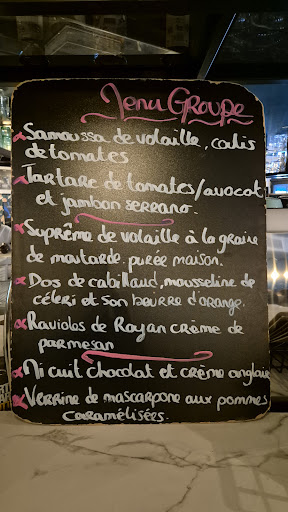 Menu Groupe
x Samoussa de volaille, coulis
de tomates
x Tartare de tomates/avocat
et jambon serrano.
x Suprême de volaille à la graine
de moutarde. purée maison.
x Dos de cabillaud, mousseline de
céleri et son beurre d'orange.
x Ravioles de Royan crème de
parmesan
x Mi cuit chocolat et crème anglaise
x Verrine de mascarpone aux pommes
caramélisées.